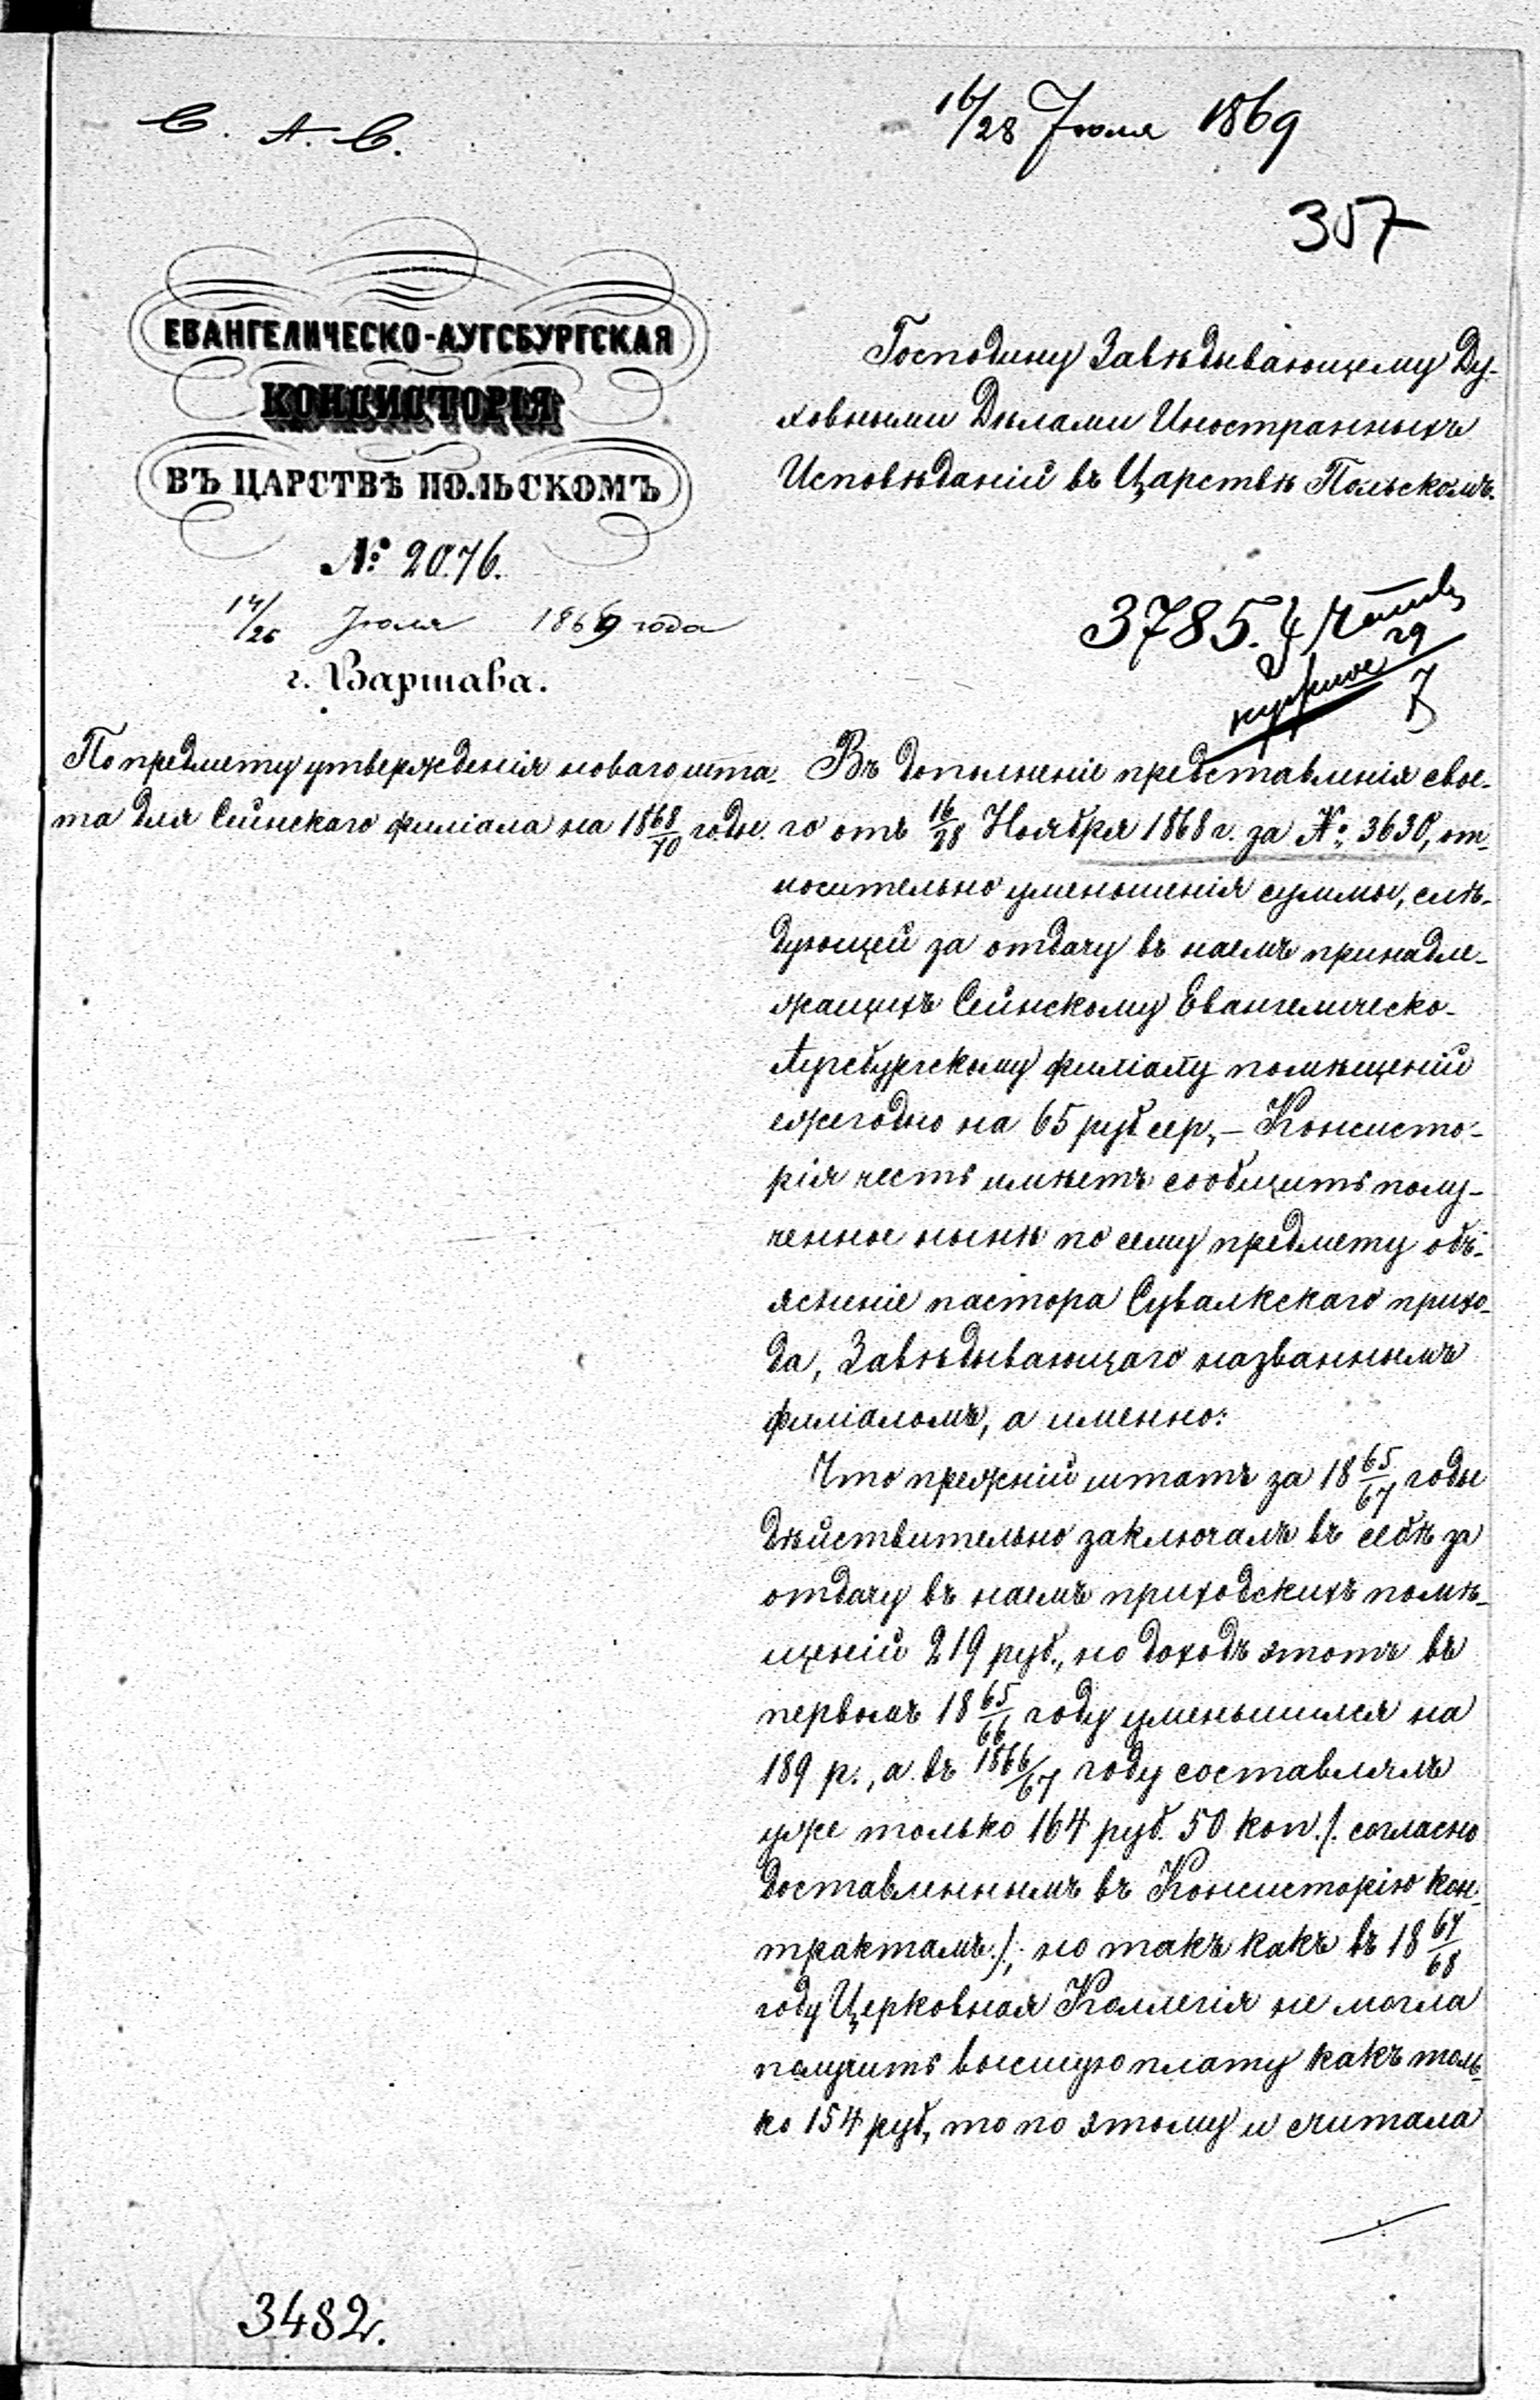 С. А. С.
16/28 Іюля 1869
357
ЕВАНГЕЛИЧЕСКО-АУГСБУРГСКАЯ
КОНСИСТОРІЯ
ВЪ ЦАРСТВѢ ПОЛЬСКОМЪ
№ 2076.
14/26 Іюля 1869 года
г. Варшава.
По предмету утвержденія новаго шта-
та для Сейнскаго филіала на 1868/70 годы.
Господину Завѣдывающему Ду-
ховными Дѣлами Иностранныхъ
Исповѣданій въ Царствѣ Польскомъ.
3785.
29
7
Въ дополненіе представленія свое-
го отъ 16/28 Ноября 1868 г. за №: 3630, от-
носительно уменьшенія суммы, слѣ-
дующей за отдачу въ наемъ принадле-
жащихъ Сейнскому Евангелическо-
Аугсбургскому филіалу помѣщеній
ежегодно на 65 руб сер, – Консисто-
рія честь имѣетъ сообщить полу-
ченное нынѣ по сему предмету объ-
ясненіе пастора Сувалкскаго прихо-
да, Завѣдывающаго названнымъ
филіаломъ, а именно:
Что прежній штатъ за 18 65/67 годы
дѣйствительно заключалъ въ себѣ за
отдачу въ наемъ приходскихъ помѣ-
щеній 219 руб., но доходъ этотъ въ
первомъ 18 65/66 году уменьшился на
189 р., а въ 1866/67 году составлялъ
уже только 164 руб. 50 коп. /. согласно
доставленнымъ въ Консисторію кон-
трактамъ ./; но такъ какъ въ 18 67/68
году Церковная Коллегія не могла
получить высшую плату какъ толь-
ко 154 руб, то по этому и считала
3482.